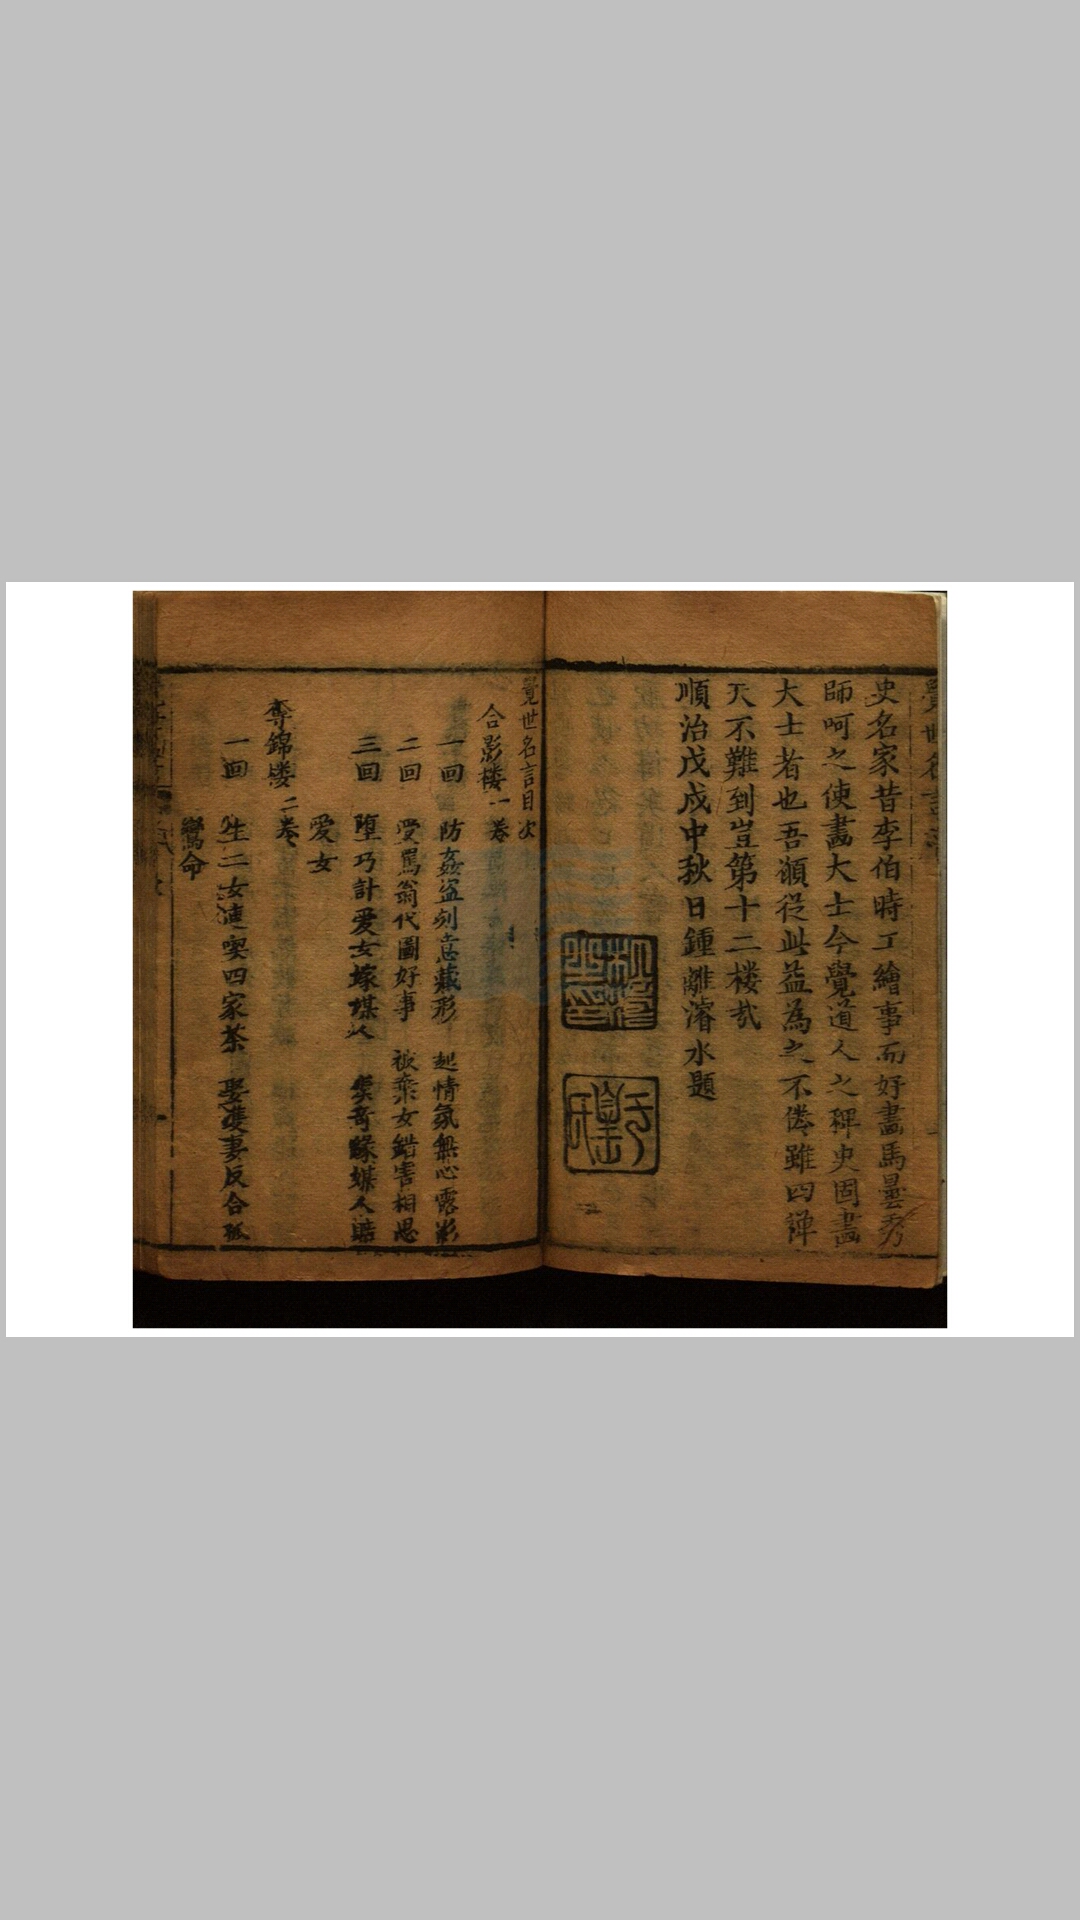 史名家昔李伯時工繪事而好畫馬曇秀
師呵之使畫大士今覺道人之稗史固畫
大士者也吾願從此益為之不倦雖四禅
天不難到豈第十二楼㢤
順治戊戌中秋日鍾離濬水題
覺世名言目次
合影楼 一卷
一回 防姦盗刻意藏形 起情氛無心露影
二回 受罵翁代圖好事 被棄女錯害相思
三回 堕巧計爱女嫁媒人 奏奇緣媒人賠
爱女
奪錦楼 二卷
一回 生二女連喫四家茶 娶雙妻反合孤
鸞命